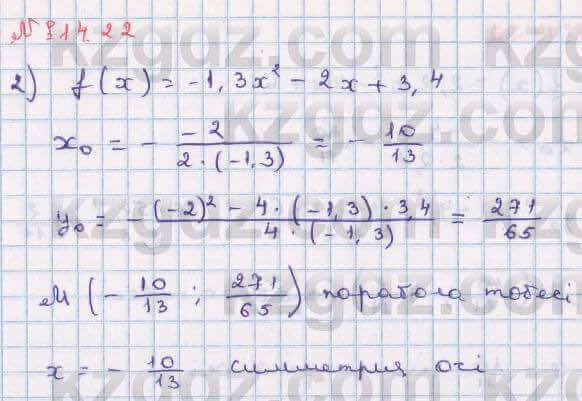 № 314.22
2) f(x) = -1,3x² - 2x + 3,4
x₀ = - \frac{-2}{2·(-1,3)} = - \frac{10}{13}
y₀ = - \frac{(-2)² - 4·(-1,3)·3,4}{4·(-1,3)} = \frac{271}{65}
M (- \frac{10}{13} ; \frac{271}{65}) парабола төбесі
x = - \frac{10}{13} симметрия осі
kzgdz.com